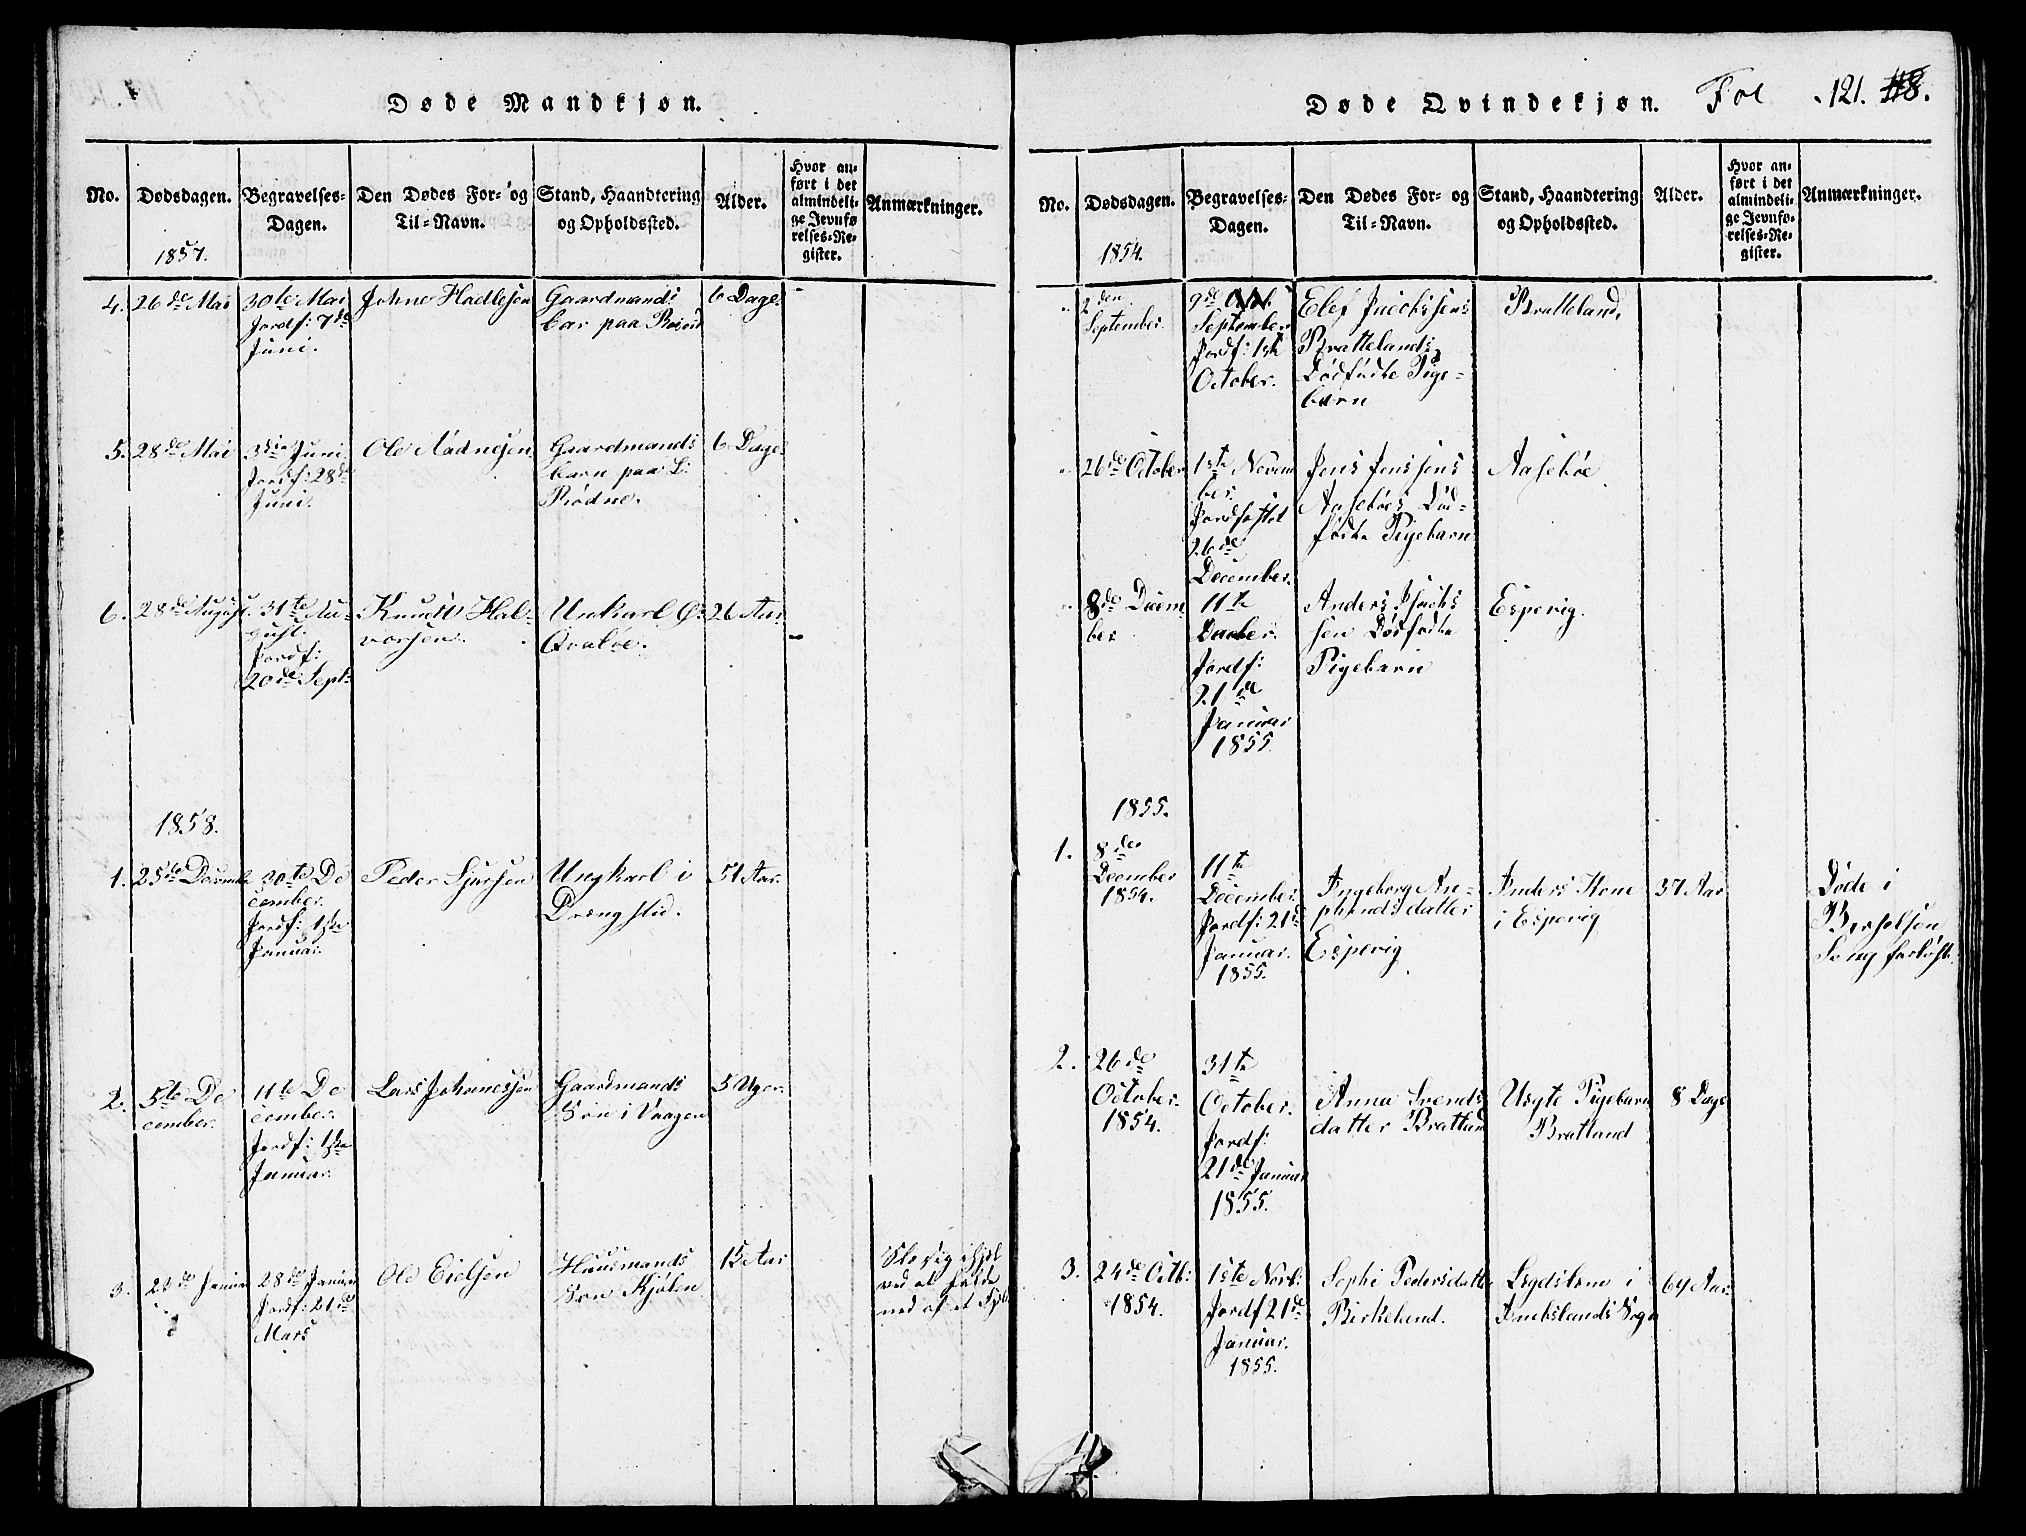 Døde Mandkjøn.
No.
Dødsdagen.
1857.
Begravelses-
Dagen.
Den Dødes For- og
Til-Navn.
Stand, Haandtering
og Opholdssted.
Alder.
Hvor an-
ført i det
almindeli-
ge Jevnfø
relses-Re-
gister.
Anmærkninger.
4.
26de Mai
30te Mai
Jordf: 7de
Juni.
Johne Hadlesen
Gaardmands
bar paa
6 Dage
5.
28de Mai
3die Juni
Jordf: 28de
Juni.
Ole Aadnesen
Gaardmands
barn paa L:
Rødne.
6 Dage
6.
28de August.
31te Au-
gust.
Jordf:
20de Sept:
Knudt Hal-
vorsen.
Unkarl Ø:
Qvaløe.
26 Aar
1858.
1.
25de Decemb
30te De
cember.
Jordf: 1ste
Januar.
Peder Sjursen
Ungkarl i
Drengstid.
51 Aar.
2.
5te De
cember.
11te De
cember.
Jordf: 1ste
Januar.
Lars Johannessen
Gaardmands
Søn i Vaagen
5 Uger.
3.
22de Januar
28de Januar
Jordf: 21de
Mars
Ole Eielsen
Huusmands
Søn Kjølen
15 Aar
Slog sig ihjel
ved at falde
ned af et
Døde Qvindekjøn.
Fol
121. 118.
No.
Dødsdagen.
1854.
Begravelses-
Dagen.
Den Dødes For- og
Til-Navn.
Stand, Haandtering
og Opholdssted.
Alder.
Hvor an-
ført i det
almindeli-
ge Jevnfø-
relses-Re-
gister.
Anmærkninger.
2den
September.
9de
September
Jordf: 1ste
October.
Elef
Brattelands
Dødfødte Pige-
barn
Bratteland.
26de October
1ste Novem
ber.
Jordfæstet
26de
December.
Jens Jenssens
Aaseböes Död-
födte Pigebarn
Aaseböe.
8de Decem
ber
11te
December.
Jordf:
21de
Januar
1855.
Anders Isaks
sen Dödfödte
Pigebarn
Espevig.
1855.
1.
8de
December
1854.
11te
December.
Jordf: 21de
Januar.
1855.
Ingeborg
datter
Espevig
Anders Kone
i Espevig
37 Aar
Døde i
Barselsen
forløst.
2.
26de
October.
1854.
31te
October.
Jordf:
21de Januar
1855.
Anna Svends
datter Brattland
Pigebarn
Bratland
8 Dage
3.
24de Octb:
1854.
1ste Novb:
Jordf 21de
Januar.
1855.
Sephi Pedersdatter
Birkeland.
i
Sogn
69 Aar.